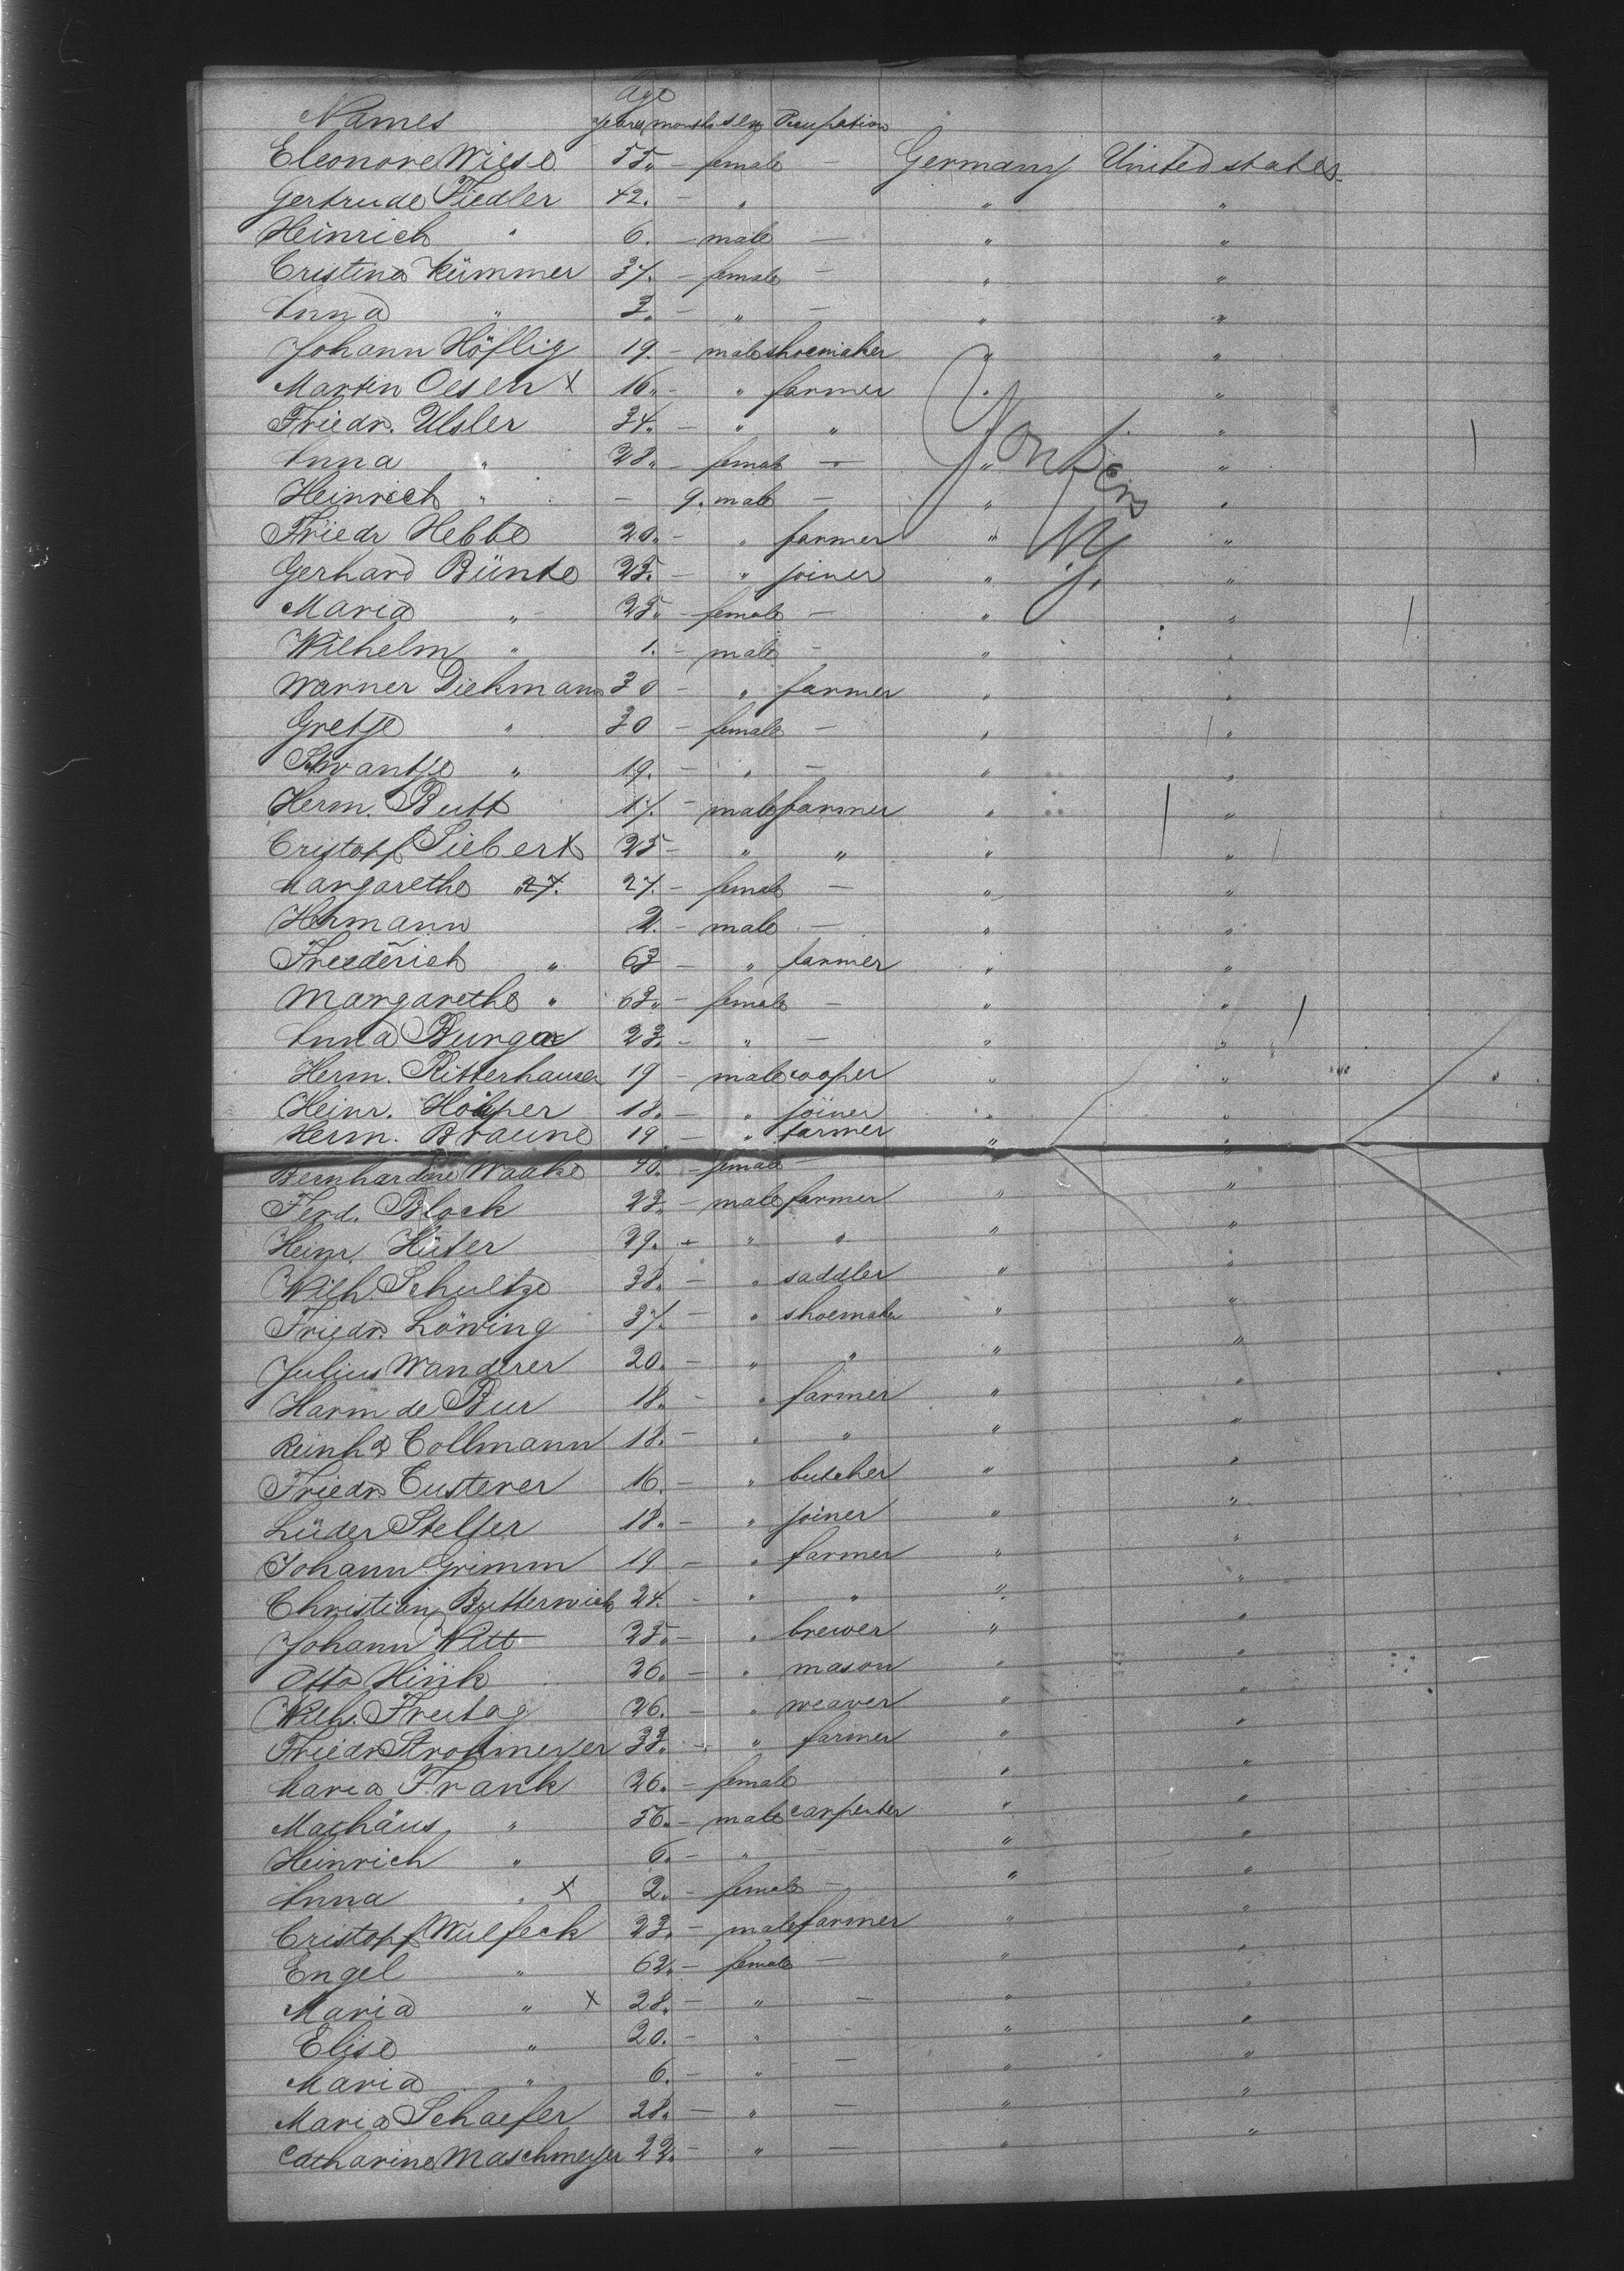 Age
Names years months sex Occupation
Eleonore Wiese 55 „ - female - Germany United states
Gertrude Fiedler 42. - „ „ „
Heinrich „ 6. - male - „ „
Cristina Kümmer 37. - female - „ „
Anna „ 3. - „ - „ „
Johann Höflig 19. - male shoemaker „ „
Martin Oesen x 16 „ - „ farmer „ „
Friedr. Ulsler 34. - „ „ „
Anna „ 28 „ - female - „ „
Heinrich „ - 9. male - „ „
Friedr Hebbe 20. - „ farmer „ „
Gerhard Bünte 25. - „ joiner „ „
Maria „ 25. - female - „ „
Wilhelm „ 1. - male - „ „
Warner Diekmann 30 - „ farmer „ „
Gretje „ 30 - female - „ „
Swantje „ 19. - „ - „ „
Herm. Butt 17. - male farmer „ „
Cristopf Siebert x 25 - „ „ „ „
Margarethe 27. 27. - female - „ „
Hermann 2. - male - „ „
Friederich „ 63 - „ farmer „ „
Margarethe „ 63 „ - female - „ „
Anna Burger 23. - „ - „ „
Herm. Ritterhausen 19 - male cooper „ „
Heinr. 18. - „ joiner „ „
Herm. Braune 19 - „ farmer „ „
Bernhardine Waake 40. - female - „ „
Ferd. Block 23. - male farmer „ „
Heinr. Hüter 29. - „ „ „ „
Wilh. Schultze 38. - „ saddler „ „
Friedr. Löwing 37. - „ shoemaker „ „
Julius Wanderer 20. - „ „ „ „
Harm de Bur 18. - „ farmer „ „
Reinhd Collmann 18. - „ „ „ „
Friedr. Custerer 16. - „ butcher „ „
Lüder Stelfer 18. - „ joiner „ „
Johann Grimm 19 - „ farmer „ „
Christian Butterwick 24. - „ „ „ „
Johann Witt 25. - „ brewer „ „
Otto Hink 26. - „ mason „ „
Wilh. Freitag 26. - „ weaver „ „
Friedr Strohmeyer 33. - „ farmer „ „
Maria Frank 26. - female „ „
Mathäus „ 56. - male carpenter „ „
Heinrich „ 6. - „ „ „
Anna „ x 2. - female - „ „
Cristopf Wulfeck 23. - male farmer „ „
Engel „ 62. - female - „ „
Maria „ x 28. - „ - „ „
Elise „ 20. - „ - „ „
Maria „ 6. - „ - „ „
Maria Schaefer 28. - „ - „ „
Catharine Maschmeyer 22. - „ - „ „
Yonkers
N.Y.